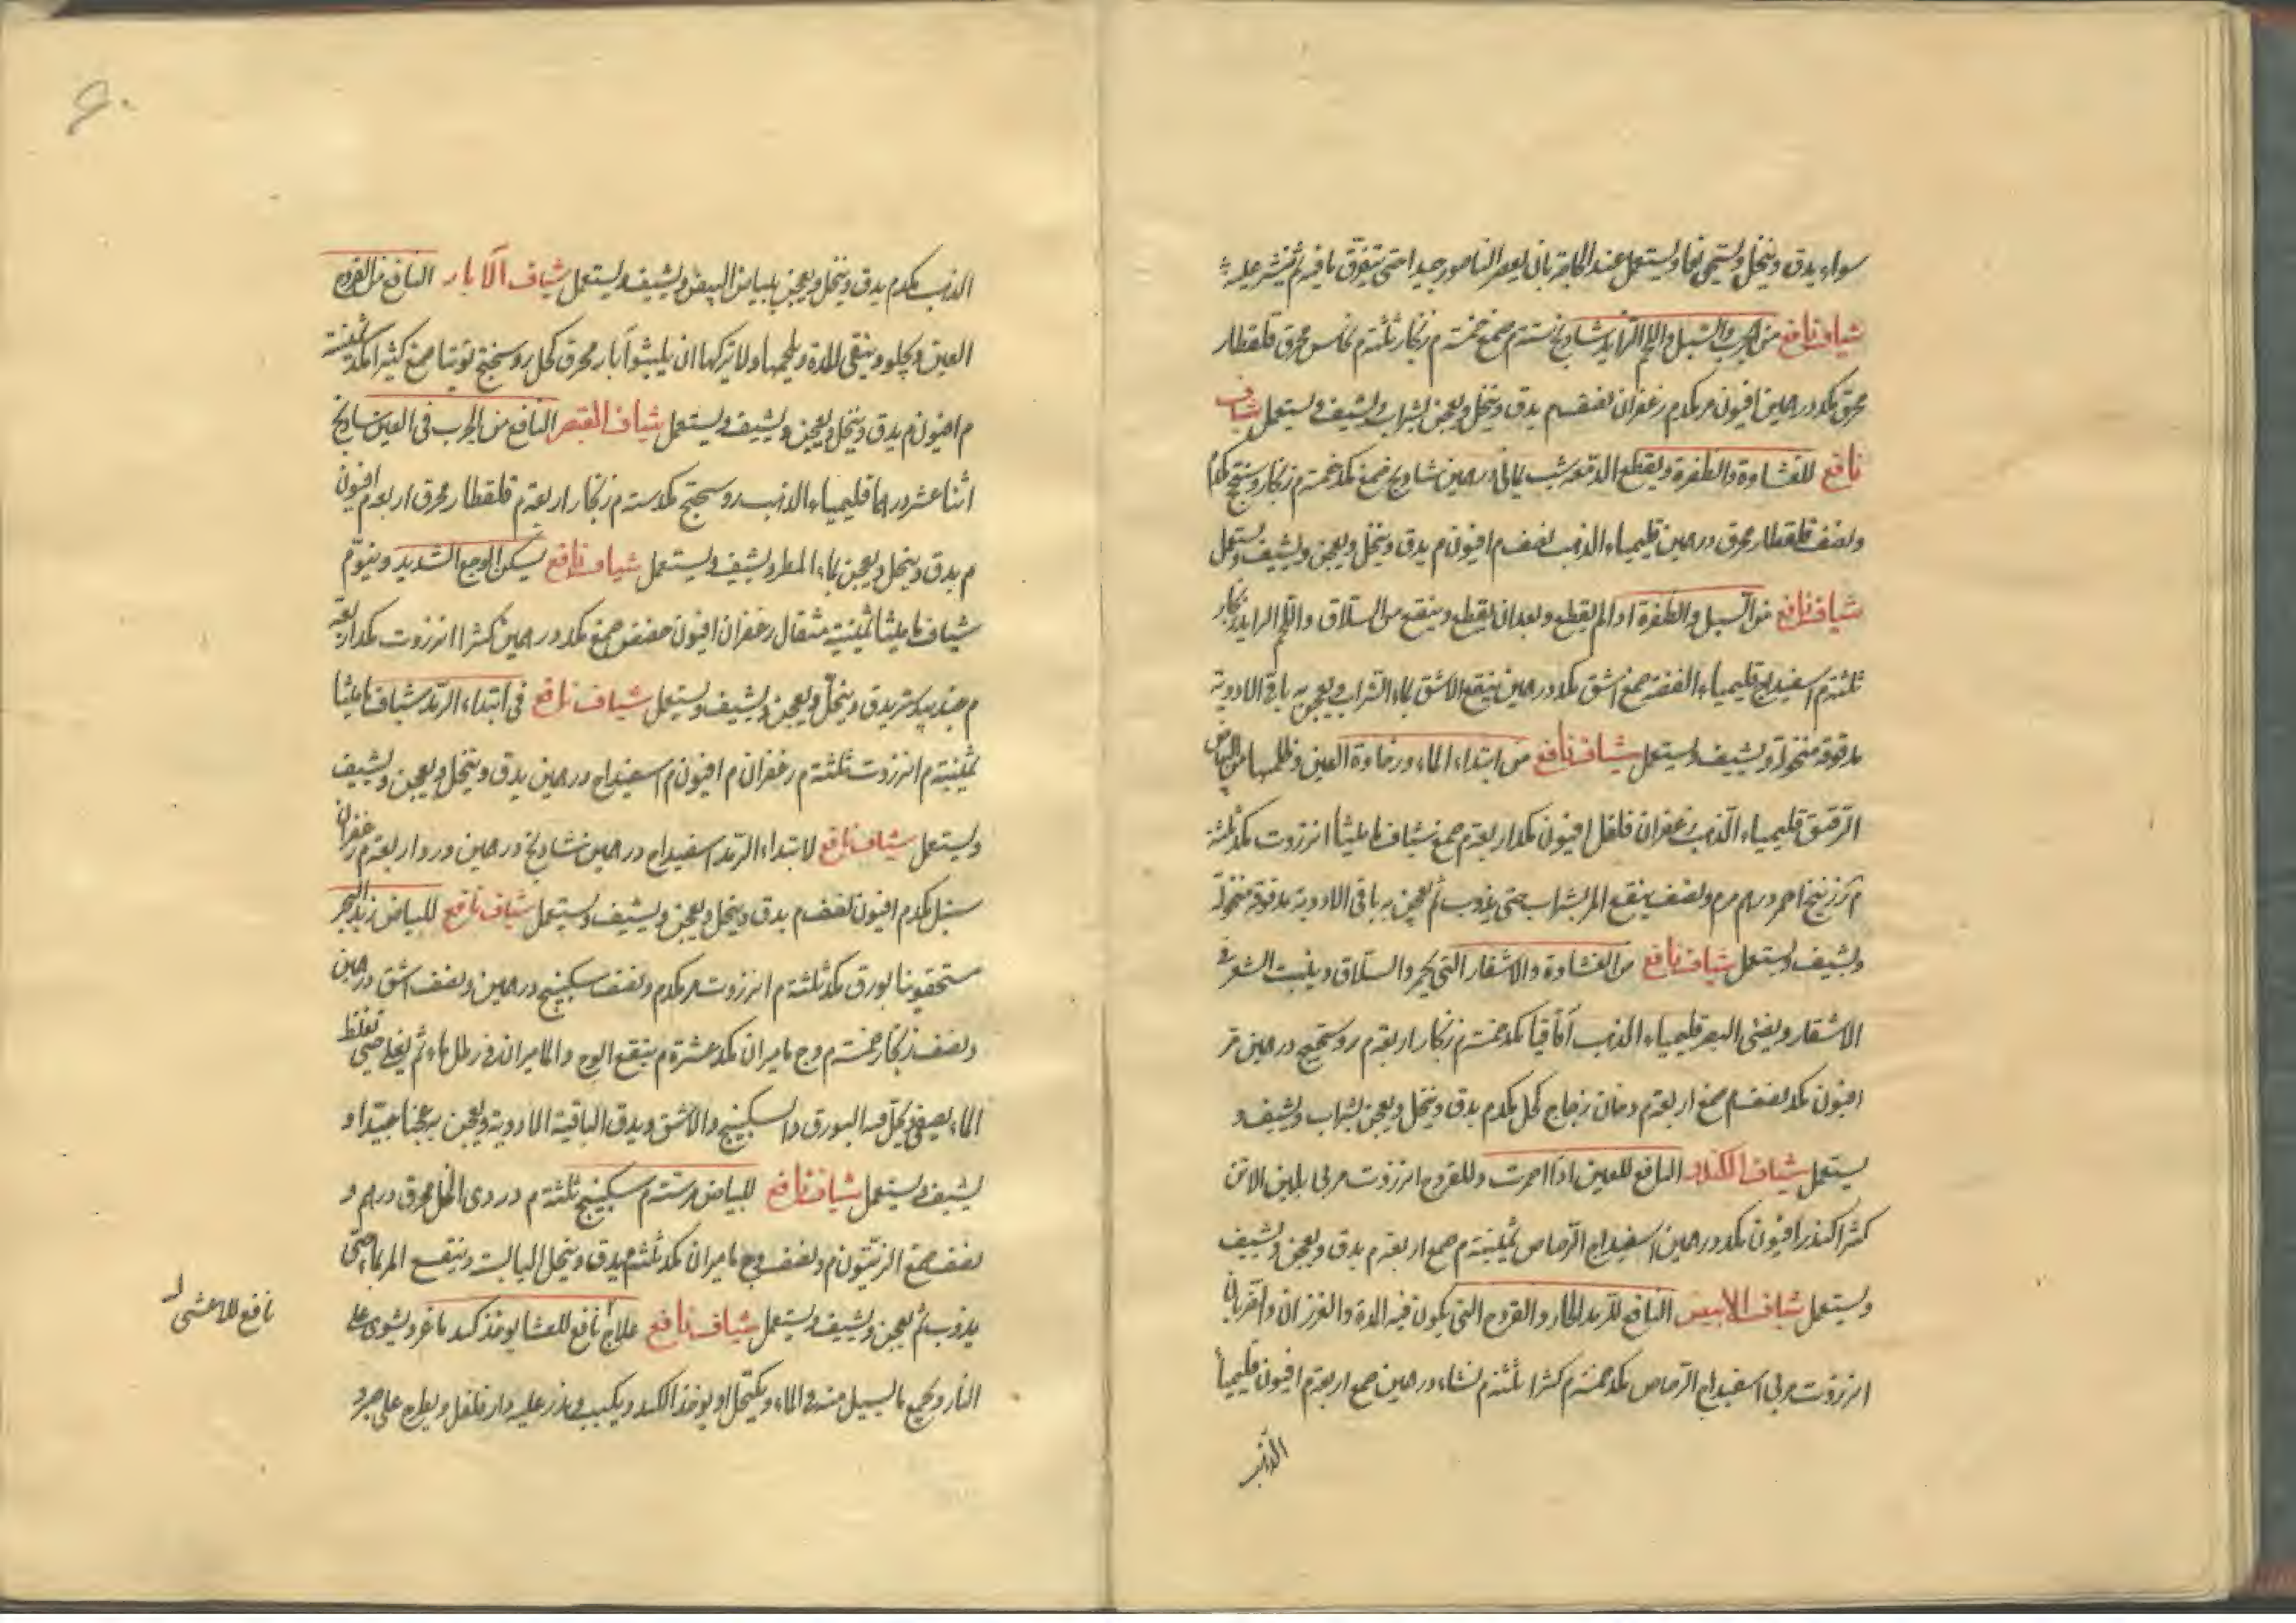 سواء يدق وينخل ويستحق ناعما ويستعمل عند الحاجة بان يعصر الناصور جيدا حتى يتفرق ما فيه ثم ينثر عليه
شياف نافع من الجرب والسبل واللحم الزايد شادنج ستة م صمغ خمسة م زنجار ثلثة م نحاس محرق قلقطار
محرق مكد درهمين افيون مر مكد م زعفران نصف م يدق وينخل ويعجن بشراب ويشيف ويستعمل شياف
نافع للغشاوة والظفرة ويقطع الدمعة شب يماني درهمين شادنج صمغ مكد خمسة م زنجار روسختج مكد م
ونصف قلقطار محرق درهمين قليمياء الذهب نصف م افيون م يدق وينخل ويعجن ويشيف ويستعمل
شياف نافع من السبل والظفرة اذا لم يقطع وبعد ان يقطع وينفع من السلاق واللحم الزايد زنجار
ثلثة م اسفيداج قليمياء الفضة صمغ اشق مكد درهمين ينقع الاشق بماء الشراب ويعجن به باقى الادوية
مدقوقة منخولة ويشيف ويستعمل شياف نافع من ابتداء الماء ورخاوة العين وظلمها من البياض
الرقيق قليمياء الذهب زعفران فلفل افيون مكد اربعة م صمغ شياف ماميثا انزروت مكد ثلثة
م زرنيخ احمر درهم مر م ونصف ينقع المر بشراب حتى يذوب ثم يعجن به باقى الادوية مدقوقة منخولة
ويشيف ويستعمل شياف نافع من الغشاوة والاشفار التى تحمر والسلاق وينبت الشعر فى
الاشفار ويضئ البصر قليمياء الذهب اقاقيا مكد خمسة م زنجار اربعة م روسختج درهمين مر
افيون مكد نصف م صمغ اربعة م دخان زجاج كحل مكد م يدق وينخل ويعجن بشراب ويشيف و
يستعمل شياف الكندر النافع للعين اذا احمرت وللقروح انزروت مربى بلبن الاتن
كثيرا كندر افيون مكد درهمين اسفيداج الرصاص ثمنية م صمغ اربعة م يدق ويعجن ويشيف
ويستعمل شياف الابيض النافع للرمد الحار والقروح التى يكون فيه المدة والغرزان والضربان
انزروت مربى اسفيداج الرصاص مكد خمسة م كثيرا ثلثة م نشاء درهمين صمغ اربعة م افيون قليمياء
الذهب
الذهب مكد م يدق وينخل ويعجن ببياض البيض ويشيف ويستعمل شياف الابار النافع من القروح
العين ويجلو وينقى المدة ويلحمها ولا يتركها ان يلبثوا ابار محرق كحل روسختج توتيا صمغ كثيرا مكد ثمنية
م افيون م يدق وينخل ويعجن ويشيف ويستعمل شياف القيصر النافع من الجرب فى العين شادنج
اثنا عشر درهما قليمياء الذهب روسختج مكد ستة م زنجار اربعة م قلقطار محرق اربعة م افيون
م يدق وينخل ويعجن بماء المطر ويشيف ويستعمل شياف نافع يسكن الوجع الشديد وينوم
شياف ماميثا ثمنية مثقال زعفران افيون حضض صمغ مكد درهمين كثيرا انزروت مكد اربعة
م جندبيدستر يدق وينخل ويعجن ويشيف ويستعمل شياف نافع فى ابتداء الرمد شياف ماميثا
ثمنية م انزروت ثلثة م زعفران م افيون م اسفيداج درهمين يدق وينخل ويعجن ويشيف
ويستعمل شياف نافع لابتداء الرمد اسفيداج درهمين شادنج درهمين ورد اربعة م زعفران
سنبل مكد م افيون نصف م يدق وينخل ويعجن ويشيف ويستعمل شياف نافع للبياض زبد البحر
سحقونيا بورق مكد ثلثة م انزروت مر مكد م ونصف سكبينج درهمين ونصف اشق درهمين
ونصف زنجار خمسة م وج ماميران مكد عشرة م ينقع الوج والماميران فى رطل ماء ثم يغلى حتى تغلظ
الماء يصفى ويحل فيه البورق والسكبينج والاشق ويدق الباقية الادوية ويعجن به عجنا جيدا و
يشيف ويستعمل شياف نافع للبياض مر ستة م سكبينج ثلثة م دردى الخل محرق درهم و
نصف صمغ الزيتون م ونصف وج ماميران مكد ثلثة م يدق وينخل اليابسة وينقع المر بماء حتى
يذوب ثم يعجن ويشيف ويستعمل شياف نافع علاج نافع للعشا يوخذ كبد ماعز ويشوى على
النار ويجمع ما يسيل منه من الماء ويكتحل او يوخذ الكبد ويكبب ويذر عليه دار فلفل ويطرح على جمر و
نافع للاعشى